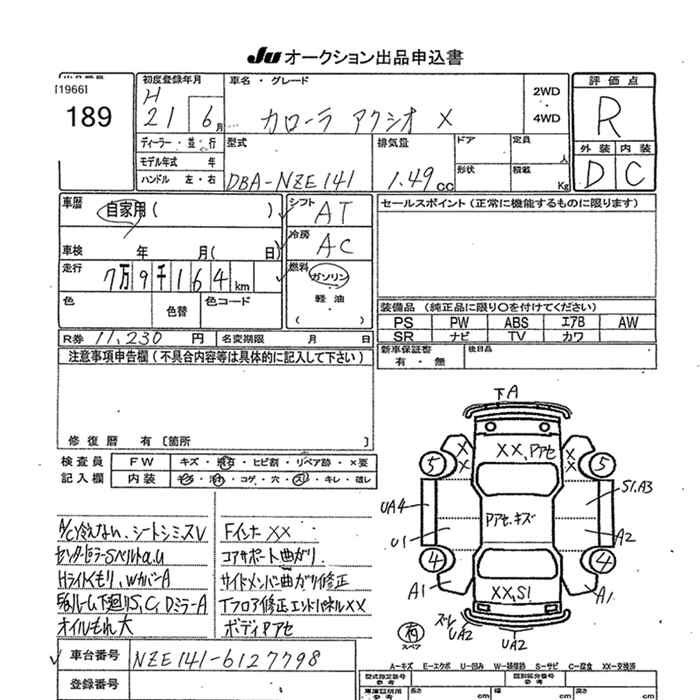 Ju オークション出品申込書
[1966]
189
初度登録年月
H 21 6月
車名・グレード
カローラ アクシオ X
2WD
・
4WD
評価点
R
外装 内装
D C
ディーラー・並・行
モデル年式 年
ハンドル 左・右
型式
DBA-NZE141
排気量
1.49cc
ドア
形状
定員
人
積載
Kg
車歴
自家用( )
シフト
AT
車検 年 月( 日)
冷房
AC
走行
7万9千164km
燃料
ガソリン
軽油
( )
色
色替
色コード
R券 11,230円
名変期限 月 日
セールスポイント(正常に機能するものに限ります)
装備品(純正品に限り○を付けてください)
PS PW ABS エアB AW
SR ナビ TV カワ
新車保証書
有・無
後日品
注意事項申告欄(不具合内容等は具体的に記入して下さい)
修復歴 有[箇所 ]
検査員
記入欄
FW キズ・飛石・ヒビ割・リペア跡・×要
内装 コゲ・穴・スレ・キレ・ヨレ
A/C冷えない、シートシミスV
Fインナー XX
コアサポート曲がり
Hライトくもり、WカバーA
サイドメンバー曲がり修正
下廻りS,C,DミラーA
Tフロア修正エンドパネルXX
オイルもれ大
ボディPアセ
車台番号
NZE141-6127798
登録番号
下A
XX,Pアセ
X
X
X
X
5
5
UA4
S1,A3
Pアセ.キズ
U1
A2
4
4
A1
XX,S1
A1
ズレ
UA2
UA2
スペア
A-キズ E-エクボ U-凹み W-補修跡 S-サビ C-腐食 XX-交換済
型式指定番号
参考
類別区分番号
参考
長さ cm
幅 cm
高さ cm